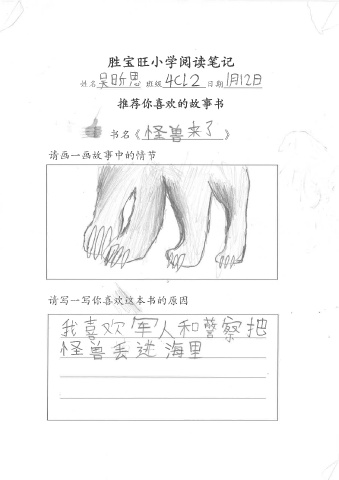 胜宝旺小学阅读笔记
姓名 吴昕恩 班级 4CL2 日期 1月12日
推荐你喜欢的故事书
书名《 怪兽来了 》
请画一画故事中的情节
请写一写你喜欢这本书的原因
我喜欢军人和警察把
怪兽丢进海里